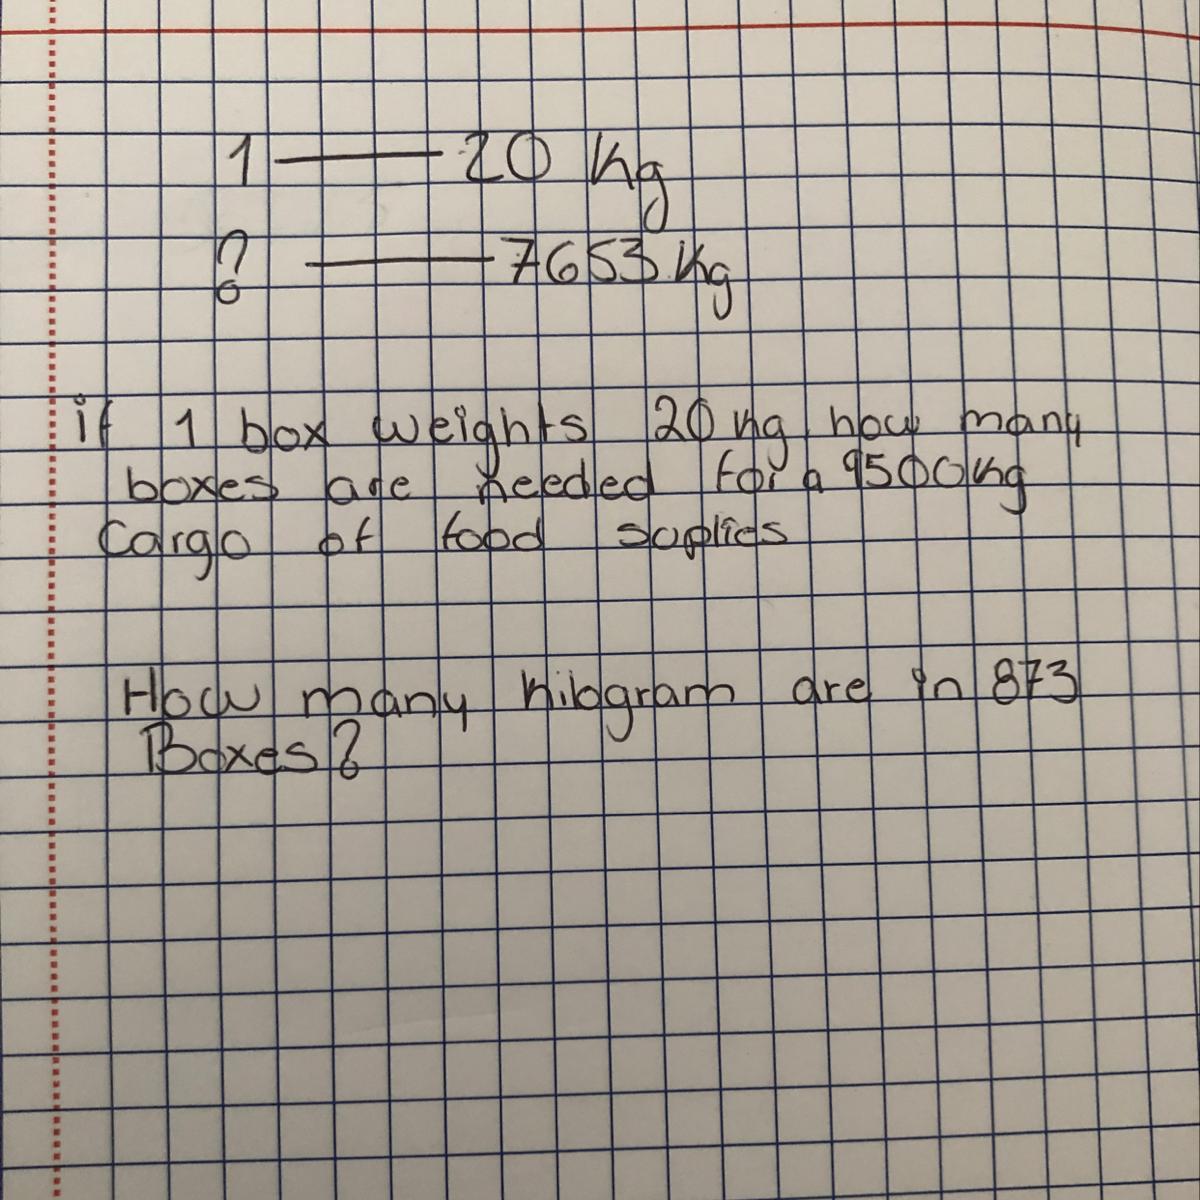 1 —— 20 Kg
? —— 7653 Kg
if 1 box weights 20 kg how many
boxes are needed for a 9500kg
Cargo of food suplies
How many kilogram are in 873
Boxes?